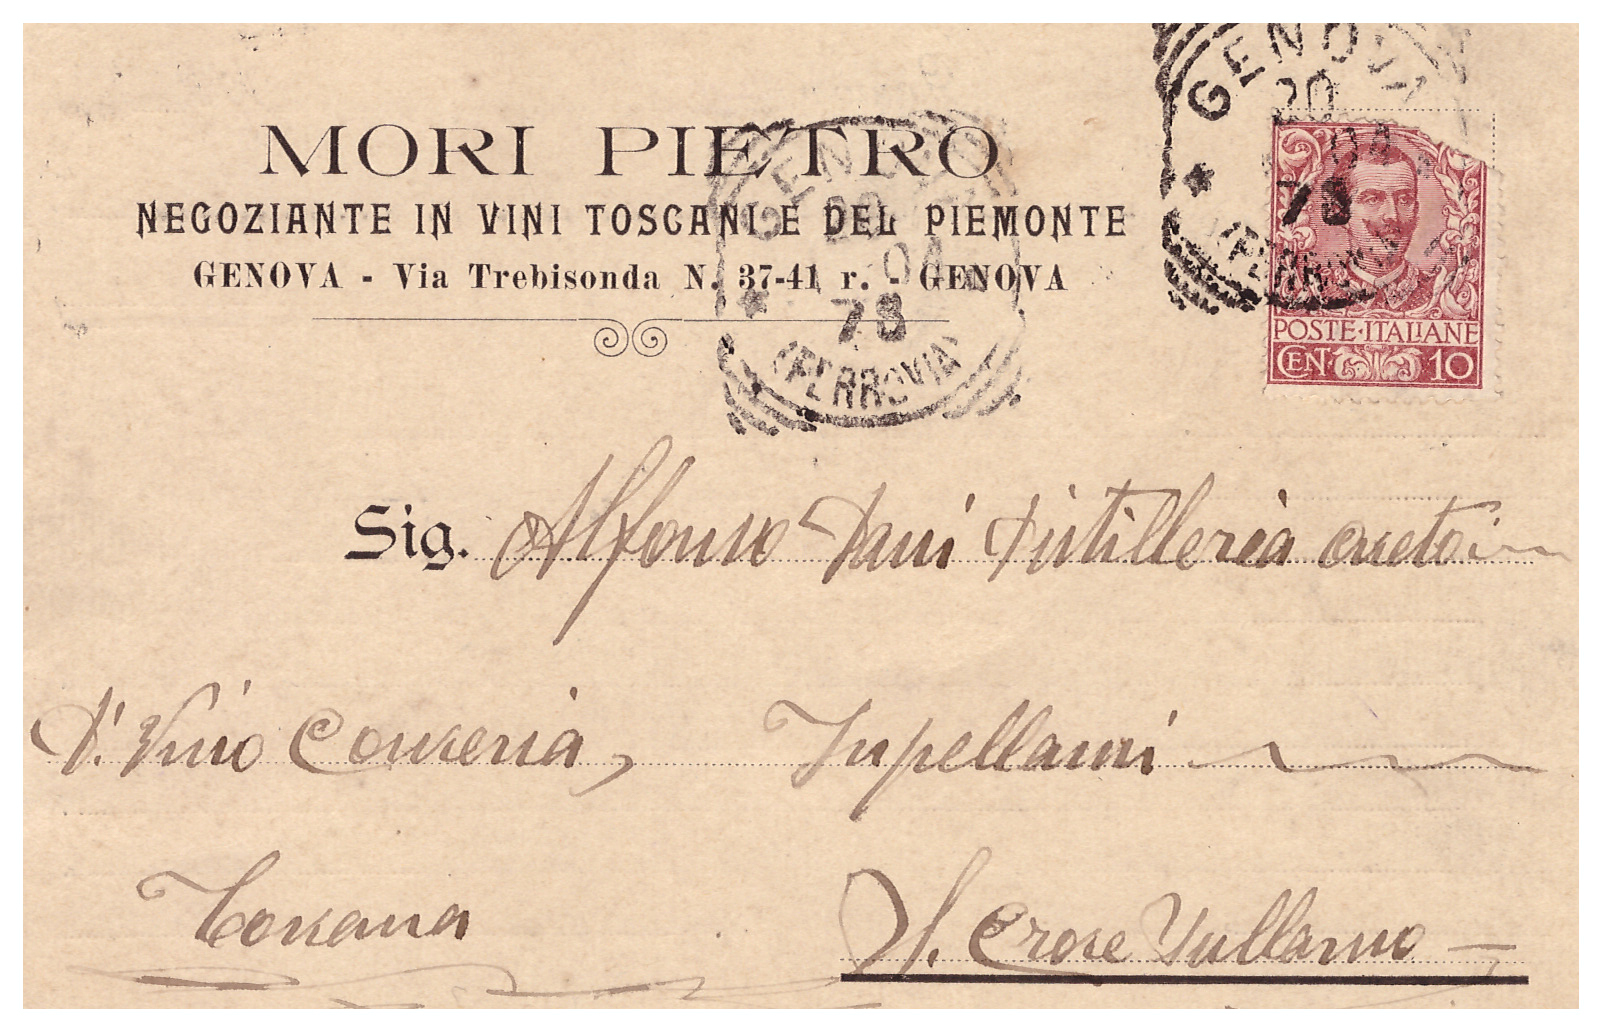 MORI PIETRO
NEGOZIANTE IN VINI TOSCANI E DEL PIEMONTE
GENOVA - Via Trebisonda N. 37-41 r. - GENOVA
GENOVA
20
04
78
(FERROVIA)
GENOVA
20
04
78
(FERROVIA)
POSTE·ITALIANE
CEN 10
Sig. Alfonso Dani Distilleria
D. Vino Conseria,
Toscana
S. Croce Sullarno